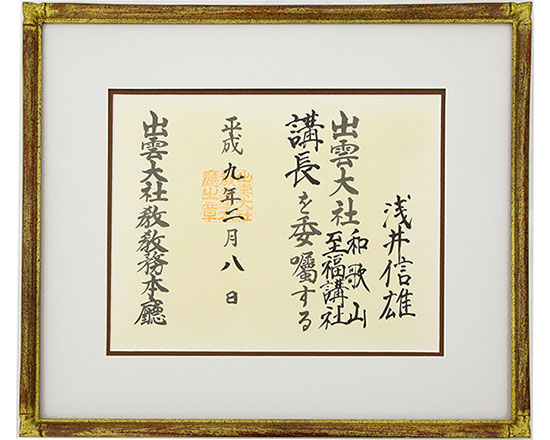 浅井信雄
出雲大社和歌山至福講社
講長を委嘱する
平成九年二月八日
出雲大社教教務本廳